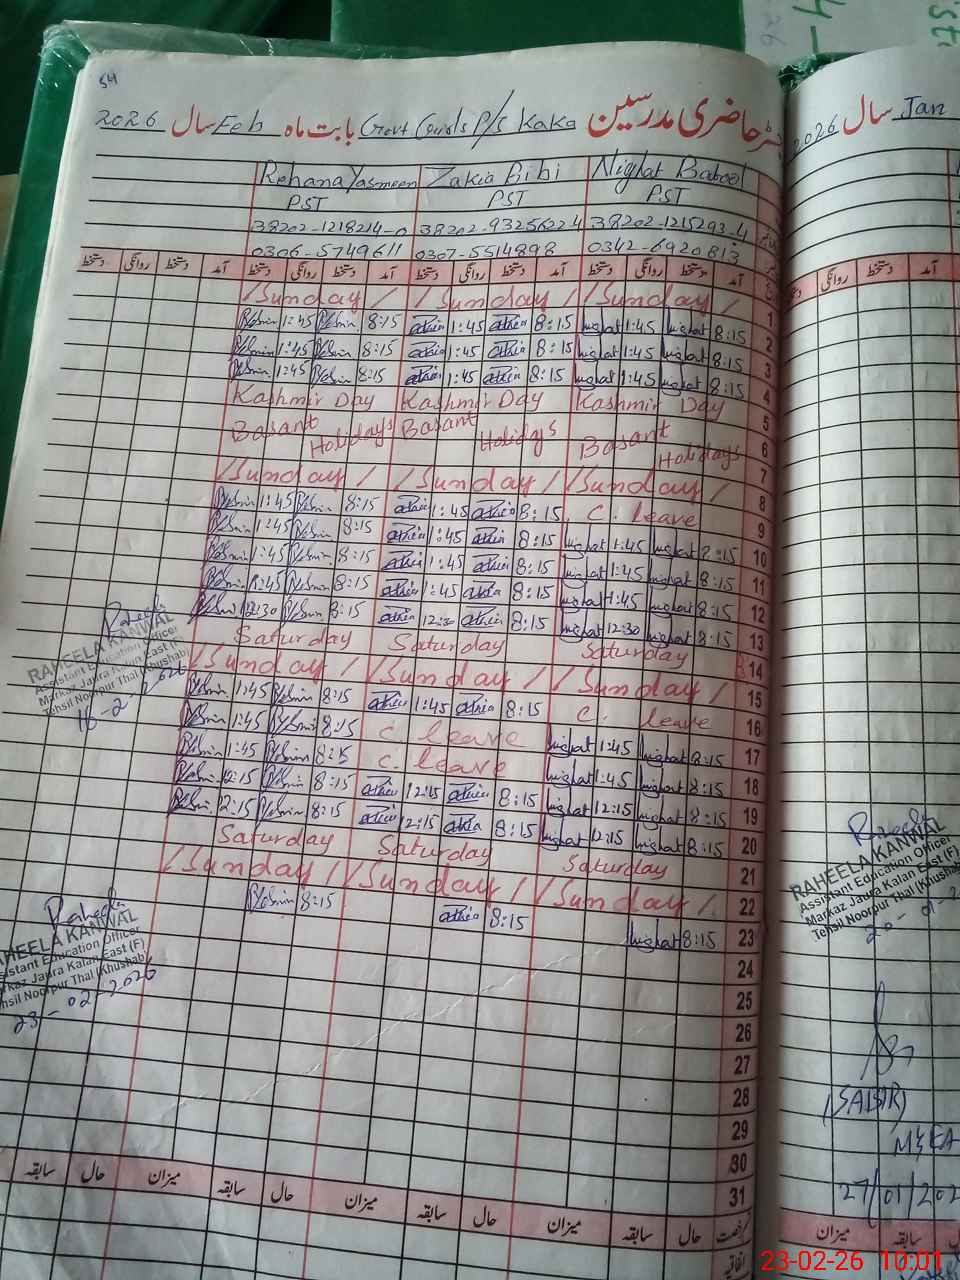 54
2026 سال Feb بابت ماہ Govt Girls P/S Kaka حاضری مدرسین
Rehana Yasmeen Zakia Bibi Nighat Batool
PST PST PST
38202-1218214-0 38202-9325622-4 38202-1215293-4
0306-5749611 0307-5514898 0342-6920813
دستخط روانگی دستخط آمد دستخط روانگی دستخط آمد دستخط روانگی دستخط آمد دستخط روانگی دستخط آمد
/Sunday/ /Sunday/ /Sunday/ 1
1:45 8:15 1:45 8:15 nighat 1:45 nighat 8:15 2
1:45 8:15 1:45 8:15 nighat 1:45 nighat 8:15 3
1:45 8:15 1:45 8:15 nighat 1:45 nighat 8:15 4
Kashmir Day Kashmir Day Kashmir Day 5
Basant Holidays Basant Holidys Basant Holidays 6
7
/Sunday/ /Sunday/ /Sunday/ 8
1:45 8:15 1:45 8:15 C. leave 9
1:45 8:15 1:45 8:15 nighat 1:45 nighat 8:15 10
1:45 8:15 1:45 8:15 nighat 1:45 nighat 8:15 11
1:45 8:15 1:45 8:15 nighat 1:45 nighat 8:15 12
12:30 8:15 12:30 8:15 nighat 12:30 nighat 8:15 13
Saturday Saturday Saturday 14
/Sunday/ /Sunday/ /Sunday/ 15
1:45 8:15 1:45 8:15 C. leave 16
1:45 8:15 C. leave nighat 1:45 nighat 8:15 17
1:45 8:15 C. leave nighat 1:45 nighat 8:15 18
12:15 8:15 12:15 8:15 nighat 12:15 nighat 8:15 19
12:15 8:15 12:15 8:15 nighat 12:15 nighat 8:15 20
Saturday Saturday Saturday 21
/Sunday/ /Sunday/ /Sunday/ 22
8:15 8:15 nighat 8:15 23
24
25
26
27
28
29
30
31
سابقہ حال میزان سابقہ حال میزان سابقہ حال میزان سابقہ حال رخصت
اتفاقیہ
Raheela
RAHEELA KANWAL
Assistant Education Officer
Markaz Jaura Kalan East (F)
Tehsil Noorpur Thal (Khushab)
16-2-2026
Raheela
RAHEELA KANWAL
Assistant Education Officer
Markaz Jaura Kalan East (F)
Tehsil Noorpur Thal (Khushab)
23-02-2026
2026 سال Jan
روانگی دستخط آمد
Raheela
RAHEELA KANWAL
Assistant Education Officer
Markaz Jaura Kalan East (F)
Tehsil Noorpur Thal (Khushab)
(SABIR)
27/01/202
میزان سابقہ
23-02-26 10:01